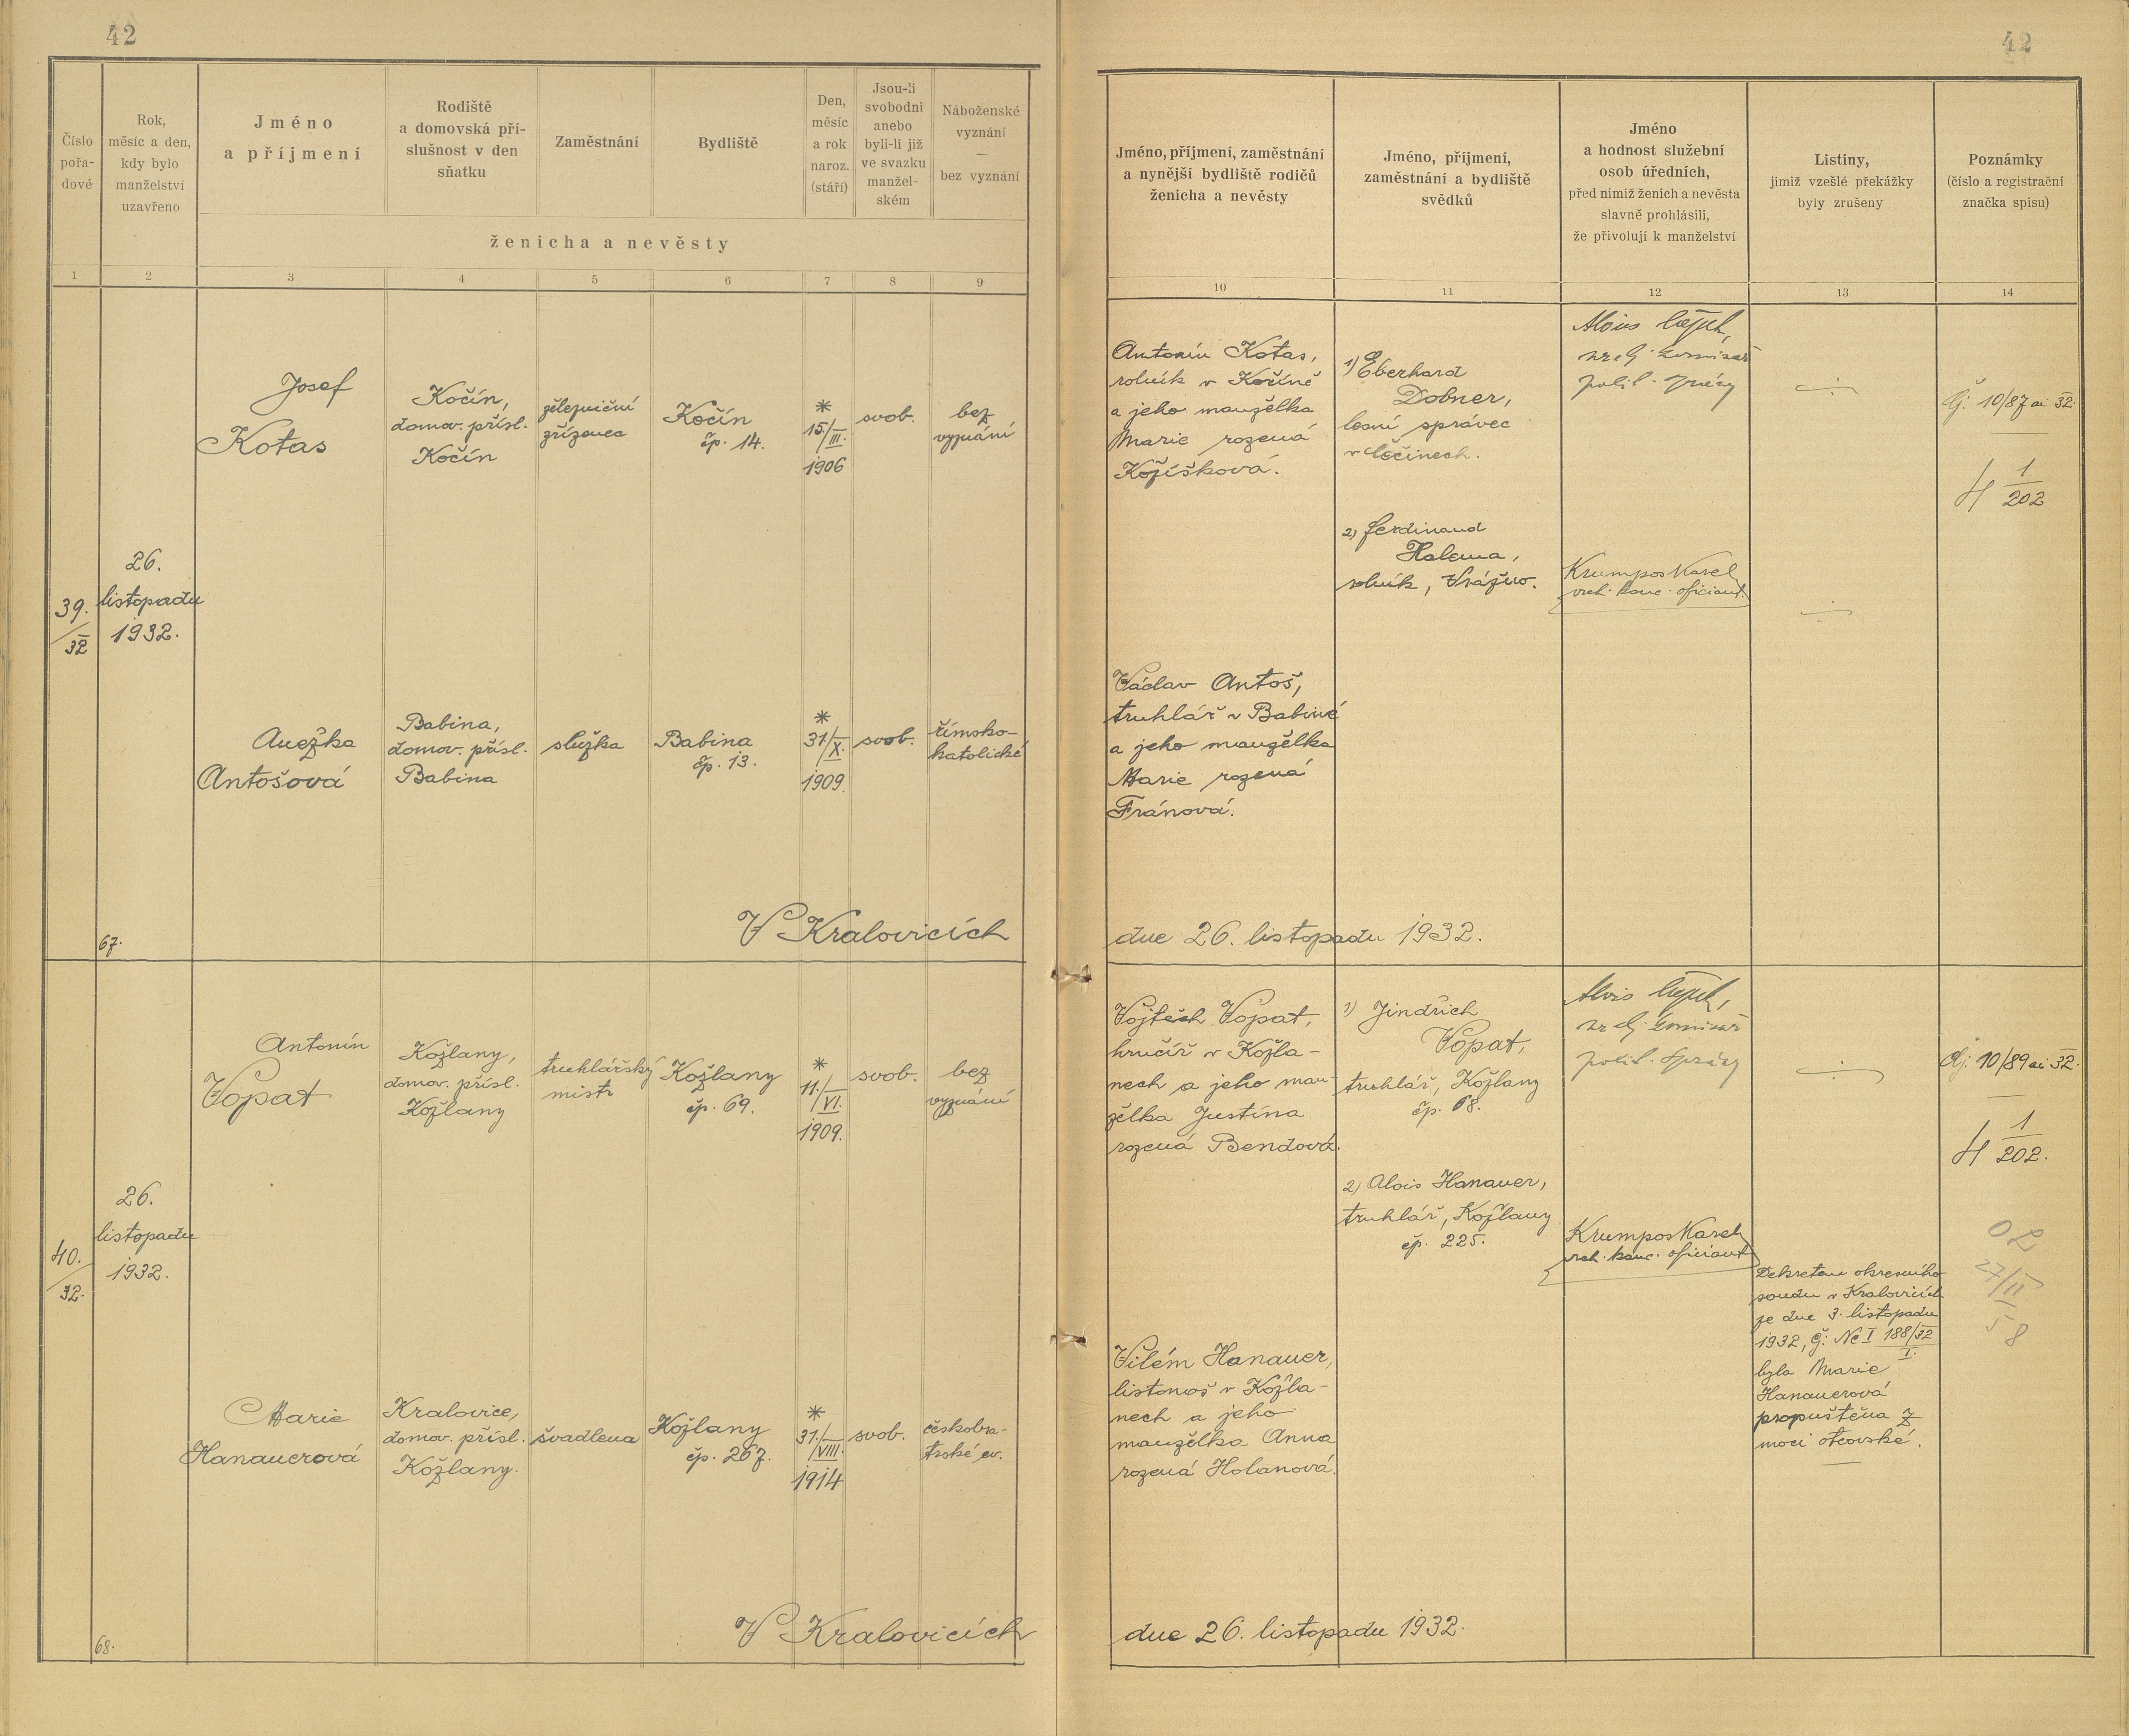 42
42
Číslo
pořa-
dové
Rok,
měsíc a den,
kdy bylo
manželství
uzavřeno
Jméno
a příjmení
Rodiště
a domovská pří-
slušnost v den
sňatku
Zaměstnání
Bydliště
Den,
měsíc
a rok
naroz.
(stáří)
Jsou-li
svobodni
anebo
byli-li již
ve svazku
manžel-
ském
Náboženské
vyznání
—
bez vyznání
ženicha a nevěsty
Jméno, příjmení, zaměstnání
a nynější bydliště rodičů
ženicha a nevěsty
Jméno, příjmení,
zaměstnání a bydliště
svědků
Jméno
a hodnost služební
osob úředních,
před nimiž ženich a nevěsta
slavně prohlásili,
že přivolují k manželství
Listiny,
jimiž vzešlé překážky
byly zrušeny
Poznámky
(číslo a registrační
značka spisu)
1 2 3 4 5 6 7 8 9 10 11 12 13 14
39.
32
26.
listopadu
1932.
Josef
Kotas
Kočín,
domov. přísl.
Kočín
železniční
zřízenec
Kočín
čp. 14.
*
15./III.
1906
svob.
bez
vyznání
Antonín Kotas,
rolník v Kočíně
a jeho manželka
Marie rozená
Kožíšková.
1) Eberhard
Dobner,
lesní správce
2) Ferdinand
Halema,
rolník, Vrážno.
Alois
polit. správy
Krumpos Karel
vrch. kanc. oficiant.
Čj. 10/87 ai 32.
H 1
202
Anežka
Antošová
Babina,
domov. přísl.
Babina
služka
Babina
čp. 13.
*
31/X.
1909.
svob.
římsko-
katolické
Václav Antoš,
truhlář v Babině
a jeho manželka
Marie rozená
Fránová.
67.
V Kralovicích
dne 26. listopadu 1932.
40.
32.
26.
listopadu
1932.
Antonín
Vopat
Kožlany,
domov. přísl.
Kožlany
truhlářský
mistr
Kožlany
čp. 69.
*
11./VI.
1909.
svob.
bez
vyznání
Vojtěch Vopat,
hrnčíř v Kožla-
nech a jeho man-
želka Justina
rozená Bendová.
1) Jindřich
Vopat,
truhlář, Kožlany
čp. 68.
2) Alois Hanauer,
truhlář, Kožlany
čp. 225.
Alois
polit. správy
Krumpos Karel
vrch. kanc. oficiant
Čj. 10/89 ai 32.
H 1
202.
27/II
58
Marie
Hanauerová
Kralovice,
domov. přísl.
Kožlany.
švadlena
Kožlany
čp. 267.
*
31./VIII.
1914
svob.
českobra-
trské ev.
Vilém Hanauer,
listonoš v Kožla-
nech a jeho
manželka Anna
rozená Holanová.
Dekretem okresního
soudu v Kralovicích
ze dne 3. listopadu
1932, čj: Nc I 188/32
1.
byla Marie
Hanauerová
propuštěna z
moci otcovské.
68.
V Kralovicích
dne 26. listopadu 1932.